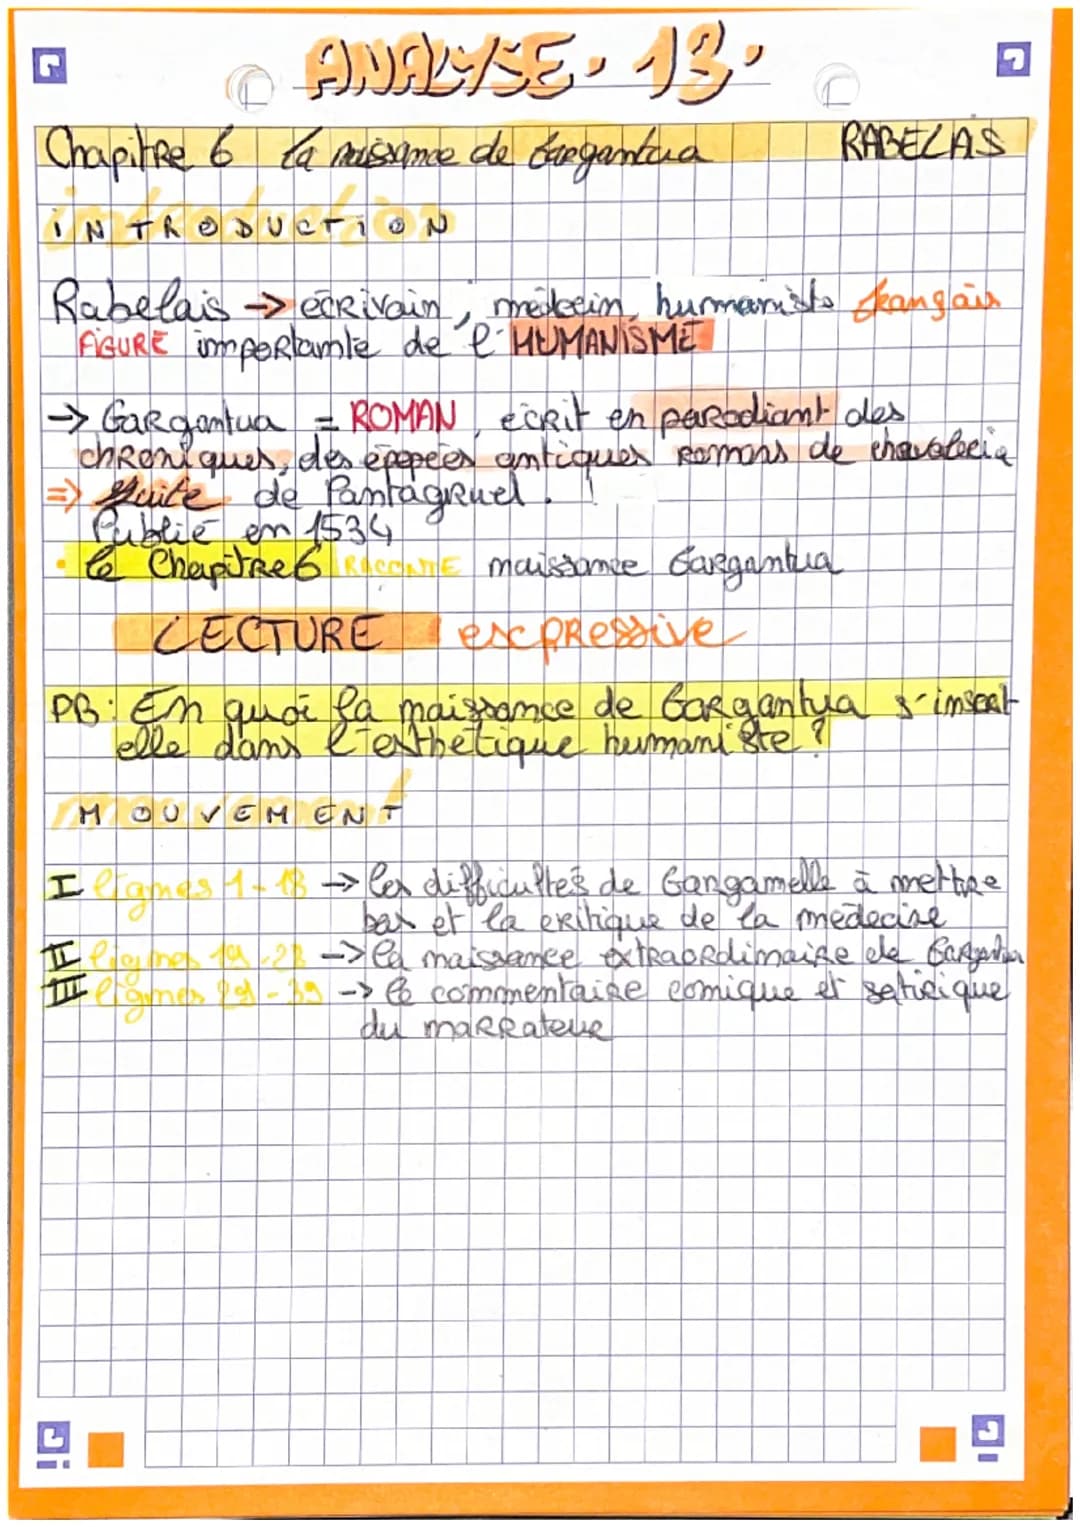 ANALYSE. 13.
Chapitre 6 la naissance de Gargantua RABELAS
introduction
INTRODUCTION
Rabelais → écrivain, médecin, humaniste français
FIGURE importante de l'HUMANISME
→ Gargantua = ROMAN, écrit en parodiant des
chroniques, des épopées antiques romans de chevalerie
=> Suite de Pantagruel.
Publié en 1534
• le Chapitre 6 RACONTE naissance Gargantua
LECTURE expressive
PB: En quoi la naissance de Gargantua s'insert-
elle dans l'esthétique humaniste ?
mouvement
MOUVEMENT
I lignes 1-18 → les difficultés de Gargamelle à mettre
bas et la critique de la médecine
II lignes 19-28 → la naissance extraordinaire de Gargantua
III lignes 29-39 → le commentaire comique et satirique
du narrateur